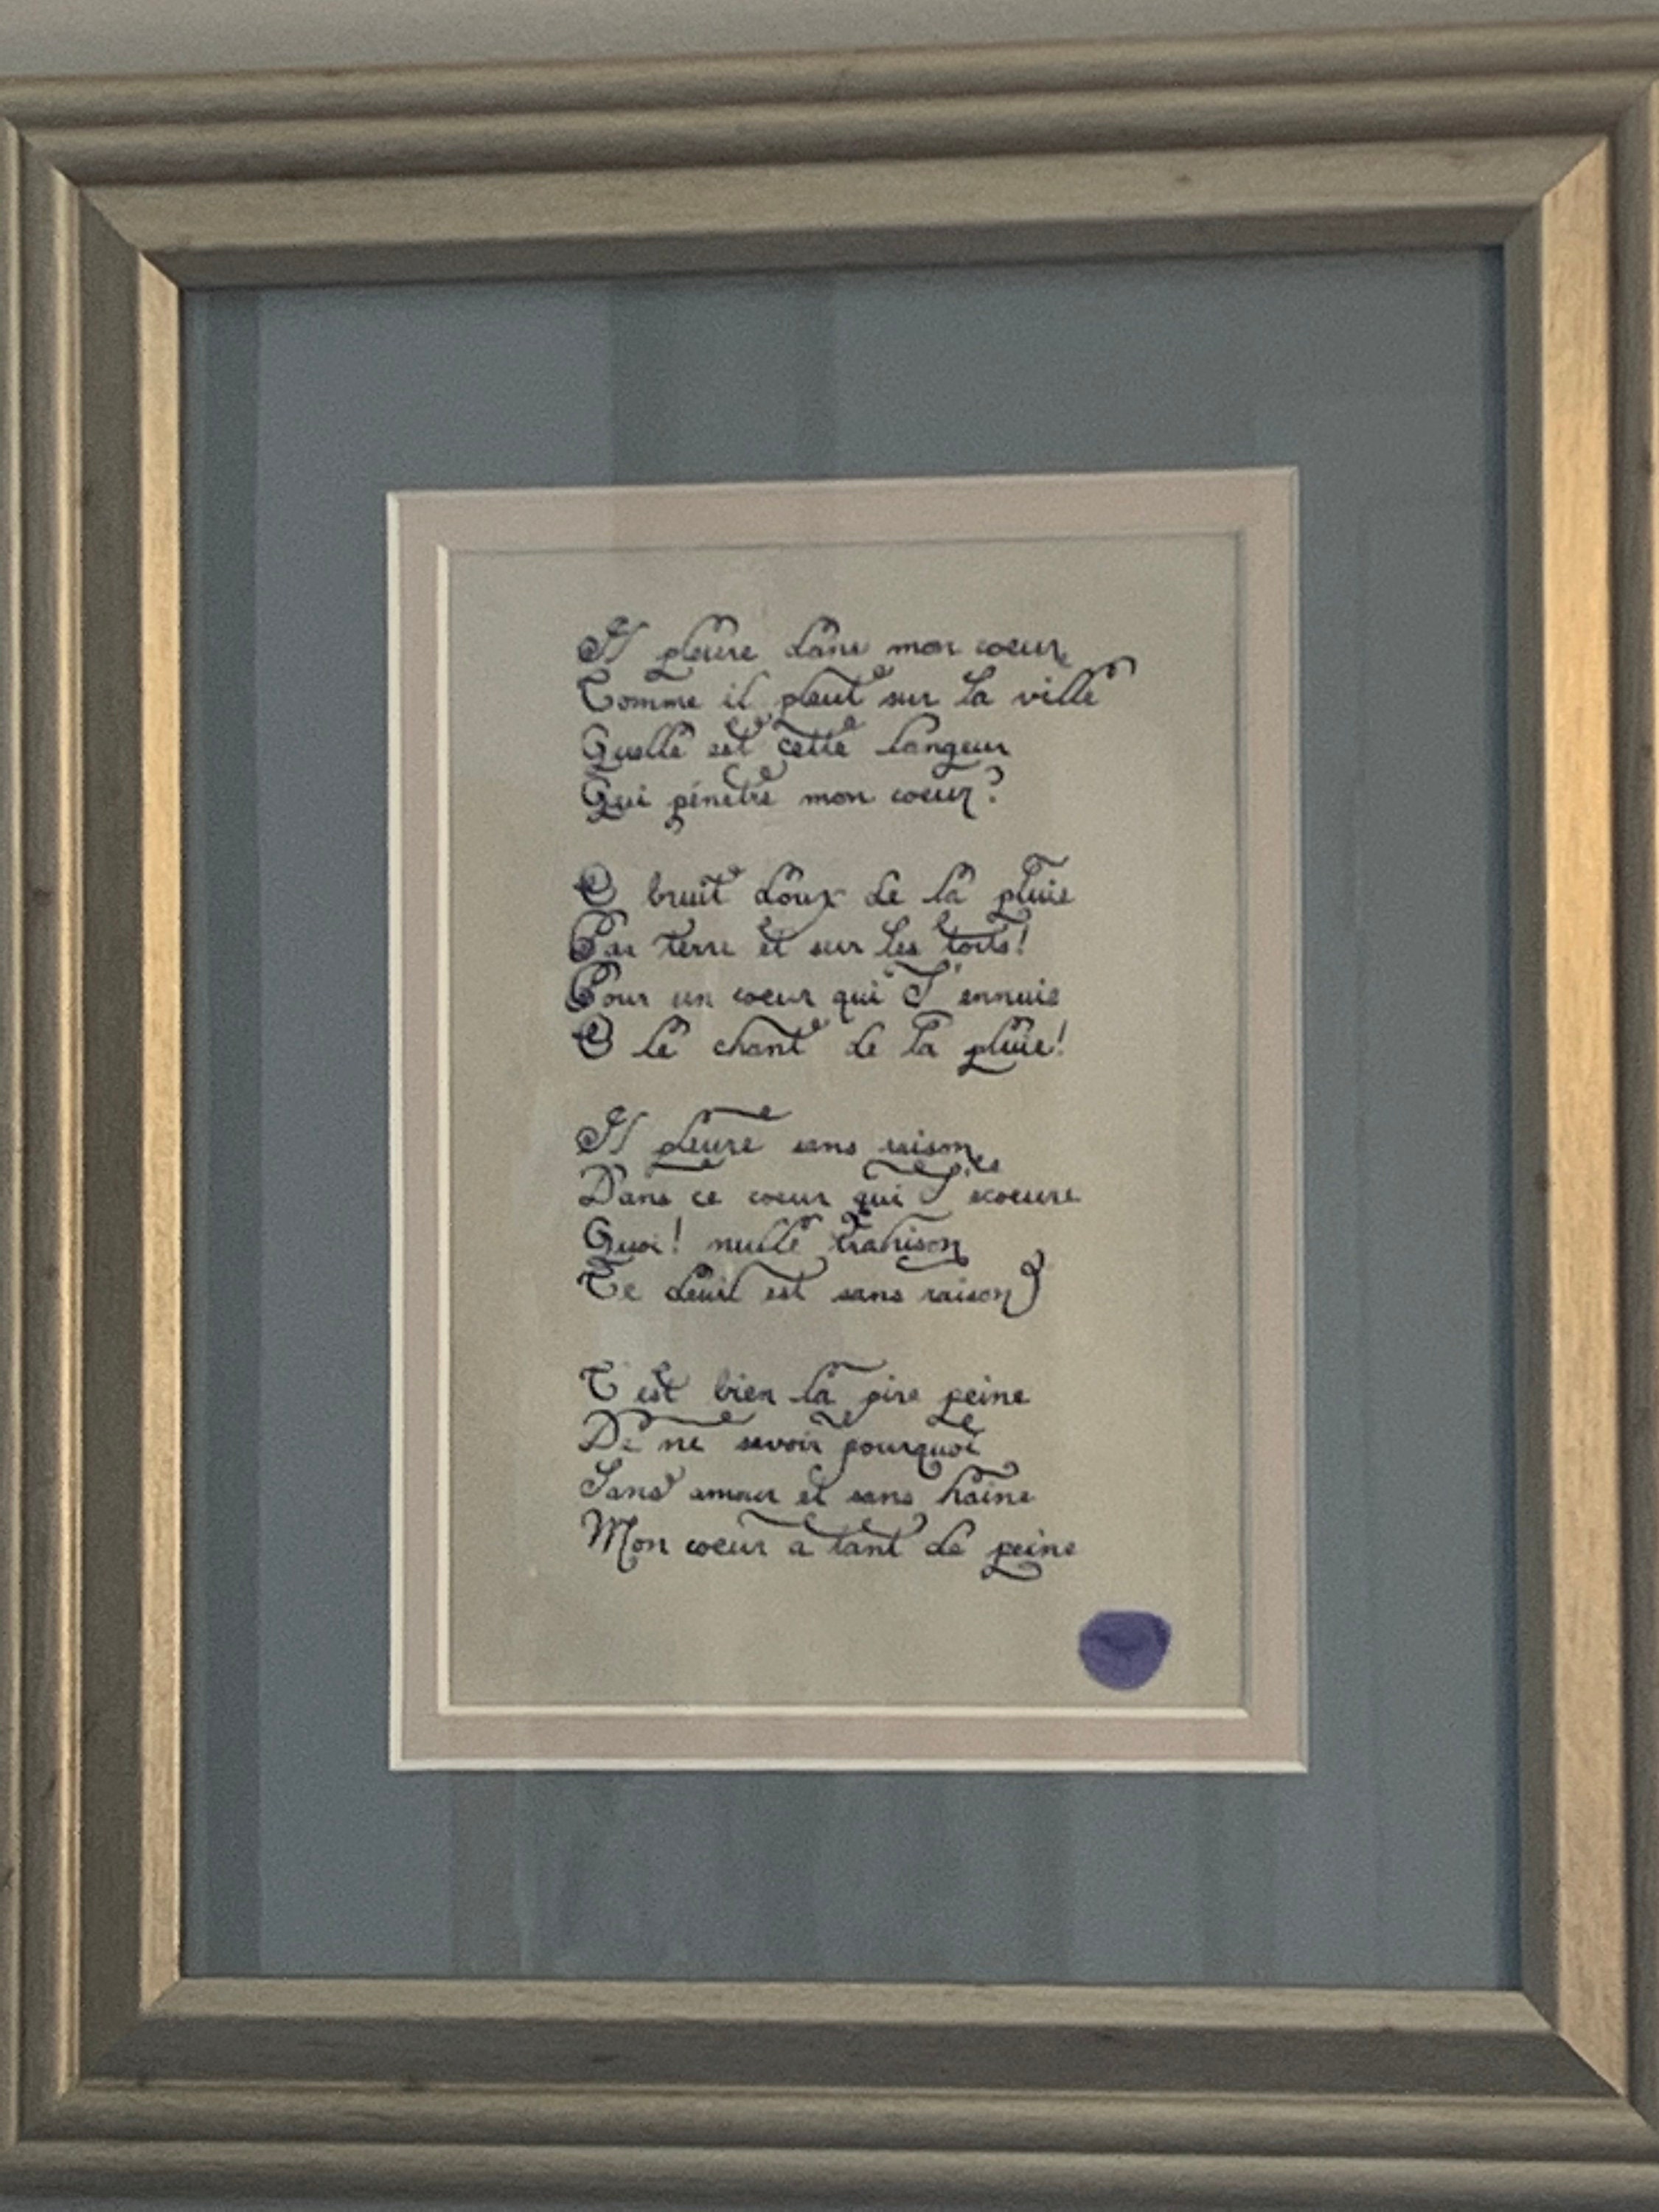 Il pleure dans mon coeur
Comme il pleut sur la ville
Quelle est cette langeur
Qui pénetre mon coeur?
O bruit doux de la pluie
Par terre et sur les toits!
Pour un coeur qui S'ennuie
O le chant de la pluie!
Il pleure sans raison
Dans ce coeur qui S'ecoeure
Quoi! nulle trahison
Ce deuil est sans raison
C'est bien la pire peine
De ne savoir pourquoi
Sans amour et sans haine
Mon coeur a tant de peine